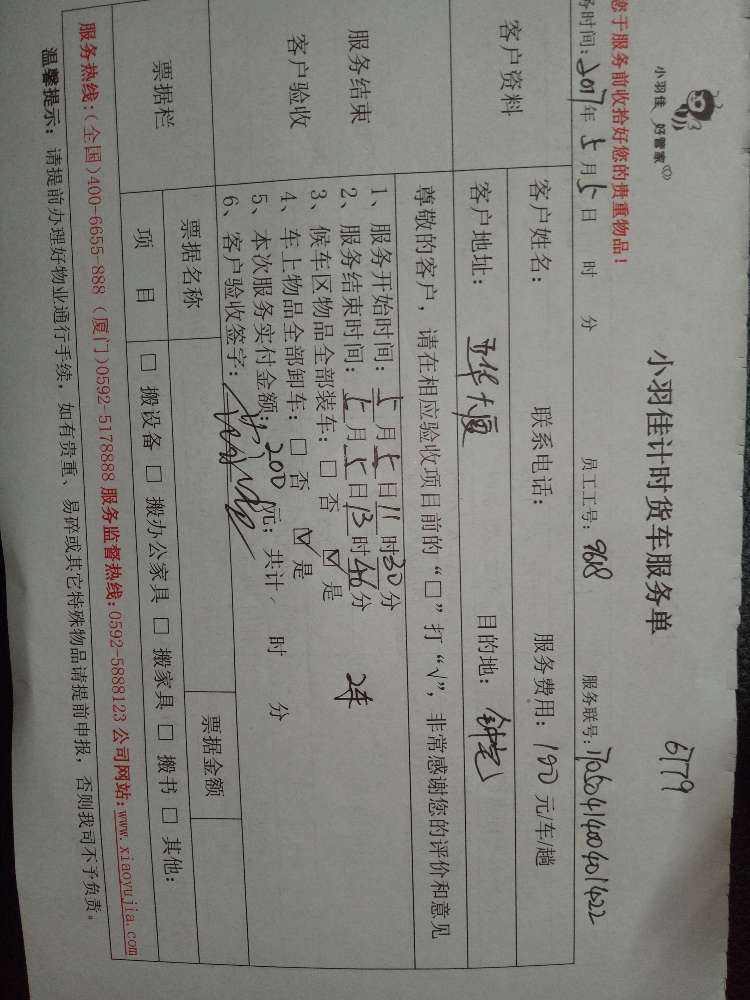 小羽佳 好管家
小羽佳计时货车服务单
6779
您于服务前收拾好您的贵重物品!
务时间:2017年5月5日 时 分 员工工号: 9618 服务联号:
客户资料
客户姓名: 联系电话: 服务费用: 100 元/车/趟
客户地址: 亚华大厦 目的地: 钟宅
服务结束
客户验收
尊敬的客户，请在相应验收项目前的“□”打“√”，非常感谢您的评价和意见
1、服务开始时间: 5月5日11时30分
2、服务结束时间: 5月5日13时46分
3、候车区物品全部装车: □ 否 ☑ 是 2车
4、车上物品全部卸车: □ 否 ☑ 是
5、本次服务实付金额: 200元; 共计 时 分
6、客户验收签字:
票据栏
票据名称 票据金额
项 目 □ 搬设备 □ 搬办公家具 □ 搬家具 □ 搬书 □ 其他:
服务热线:(全国)400-6655-888 (厦门)0592-5178888 服务监督热线:0592-5888123 公司网站:www.xiaoyujia.com
温馨提示: 请提前办理好物业通行手续，如有贵重、易碎或其它特殊物品请提前申报，否则我司不予负责。